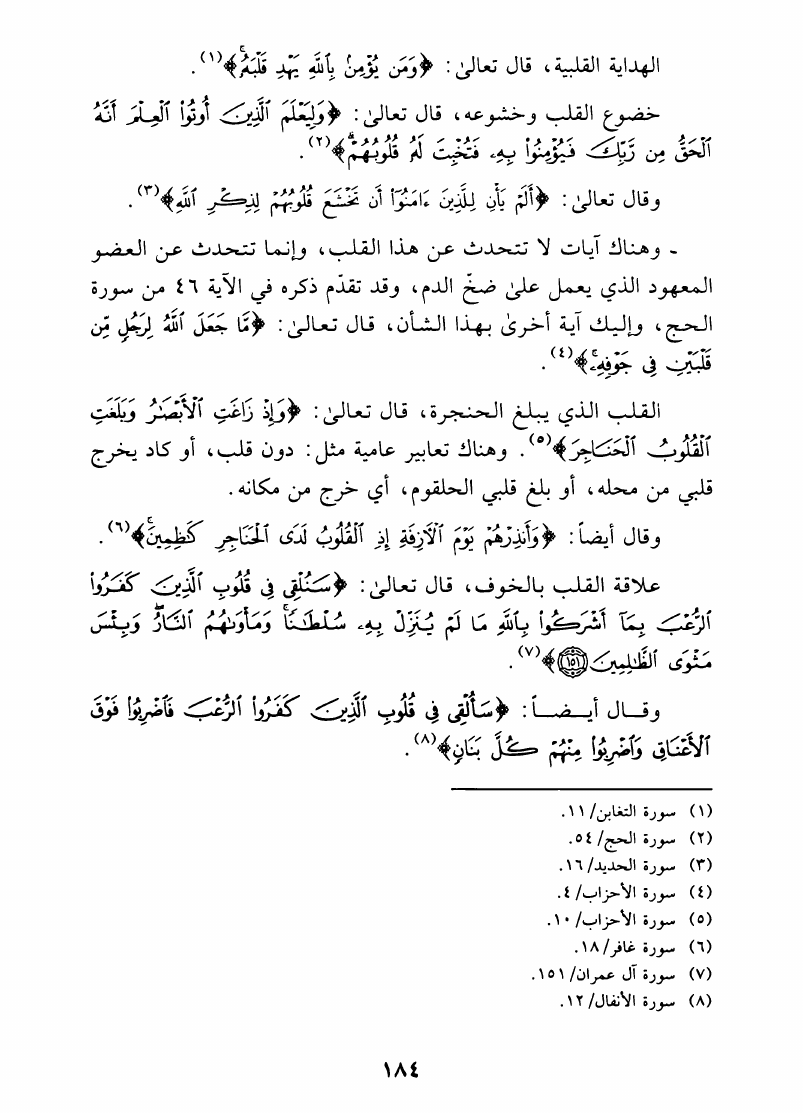 الهداية القلبية، قال تعالىٰ: ﴿وَمَن يُؤْمِنۢ بِٱللَّهِ يَهْدِ قَلْبَهُۥۚ﴾(١).
خضوع القلب وخشوعه، قال تعالىٰ: ﴿وَلِيَعْلَمَ ٱلَّذِينَ أُوتُوا۟ ٱلْعِلْمَ أَنَّهُ
ٱلْحَقُّ مِن رَّبِّكَ فَيُؤْمِنُوا۟ بِهِۦ فَتُخْبِتَ لَهُۥ قُلُوبُهُمْۗ﴾(٢).
وقال تعالىٰ: ﴿أَلَمْ يَأْنِ لِلَّذِينَ ءَامَنُوٓا۟ أَن تَخْشَعَ قُلُوبُهُمْ لِذِكْرِ ٱللَّهِ﴾(٣).
- وهناك آيات لا تتحدث عن هذا القلب، وإنما تتحدث عن العضو
المعهود الذي يعمل علىٰ ضخّ الدم، وقد تقدّم ذكره في الآية ٤٦ من سورة
الحج، وإليك آية أخرىٰ بهذا الشأن، قال تعالىٰ: ﴿مَّا جَعَلَ ٱللَّهُ لِرَجُلٍ مِّن
قَلْبَيْنِ فِى جَوْفِهِۦۚ﴾(٤).
القلب الذي يبلغ الحنجرة، قال تعالىٰ: ﴿وَإِذْ زَاغَتِ ٱلْأَبْصَٰرُ وَبَلَغَتِ
ٱلْقُلُوبُ ٱلْحَنَاجِرَ﴾(٥). وهناك تعابير عامية مثل: دون قلب، أو كاد يخرج
قلبي من محله، أو بلغ قلبي الحلقوم، أي خرج من مكانه.
وقال أيضاً: ﴿وَأَنذِرْهُمْ يَوْمَ ٱلْآزِفَةِ إِذِ ٱلْقُلُوبُ لَدَى ٱلْحَنَاجِرِ كَٰظِمِينَۚ﴾(٦).
علاقة القلب بالخوف، قال تعالىٰ: ﴿سَنُلْقِى فِى قُلُوبِ ٱلَّذِينَ كَفَرُوا۟
ٱلرُّعْبَ بِمَآ أَشْرَكُوا۟ بِٱللَّهِ مَا لَمْ يُنَزِّلْ بِهِۦ سُلْطَٰنًاۖ وَمَأْوَىٰهُمُ ٱلنَّارُۖ وَبِئْسَ
مَثْوَى ٱلظَّٰلِمِينَ ١٥١﴾(٧).
وقـال أيـضـاً: ﴿سَأُلْقِى فِى قُلُوبِ ٱلَّذِينَ كَفَرُوا۟ ٱلرُّعْبَ فَٱضْرِبُوا۟ فَوْقَ
ٱلْأَعْنَاقِ وَٱضْرِبُوا۟ مِنْهُمْ كُلَّ بَنَانٍ﴾(٨).
(١) سورة التغابن/١١.
(٢) سورة الحج/٥٤.
(٣) سورة الحديد/١٦.
(٤) سورة الأحزاب/٤.
(٥) سورة الأحزاب/١٠.
(٦) سورة غافر/١٨.
(٧) سورة آل عمران/١٥١.
(٨) سورة الأنفال/١٢.
١٨٤